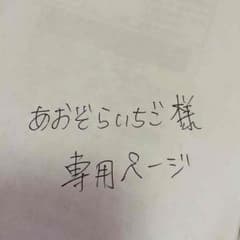 あおぞらいちご様
専用ページ